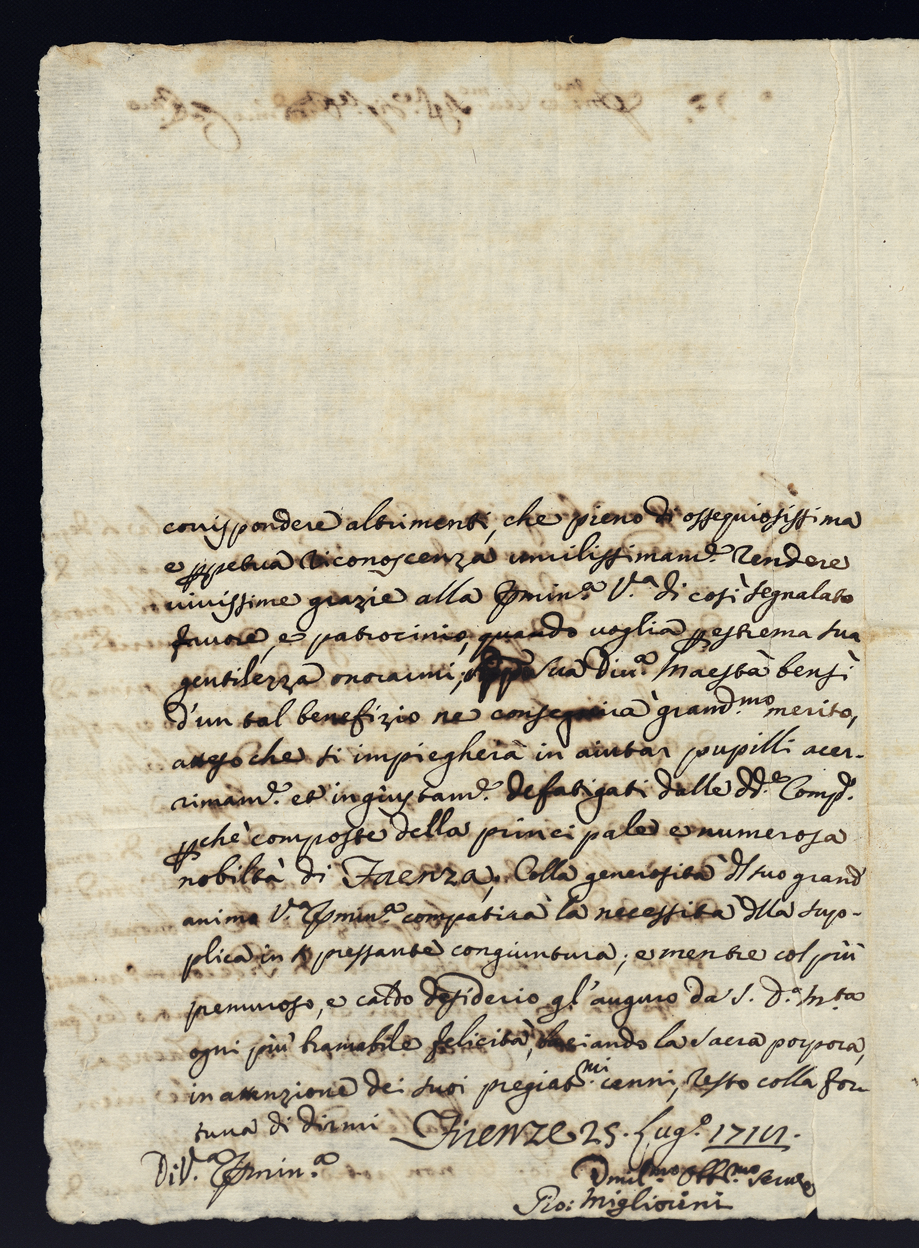 corrispondere altrimenti, che pieno di ossequiosissima
e ppetua riconoscenza umilissimam.e rendere
vivissime grazie alla Emin.a V.a di così segnalato
favore, e patrocinio, quando voglia p estrema sua
gentilezza onorarmi; Sua Div.a Maestà bensì
d'un tal benefizio ne conseguirà grand.mo merito,
atteso che si impiegherà in aiutar pupilli acer-
rimam.e et ingiustam.e defatigati dalle dd.e Comp.e
pchè composte della principale e numerosa
nobiltà di Faenza; Colla generosità dl suo grand
animo V.a Emin.a compatirà la necessità dlla sup-
plica in sì pressante congiuntura; e mentre col più
premuroso, e caldo desiderio gl'auguro da S. D.a M.ta
ogni più bramabile felicità, baciando la Sacra porpora,
in attenzione dei suoi pregiat.mi cenni, resto colla for-
tuna di dirmi Firenze 25. Lug.o
Di V.a Emin.a
Umil.mo Obb.mo Servo
Migliorini